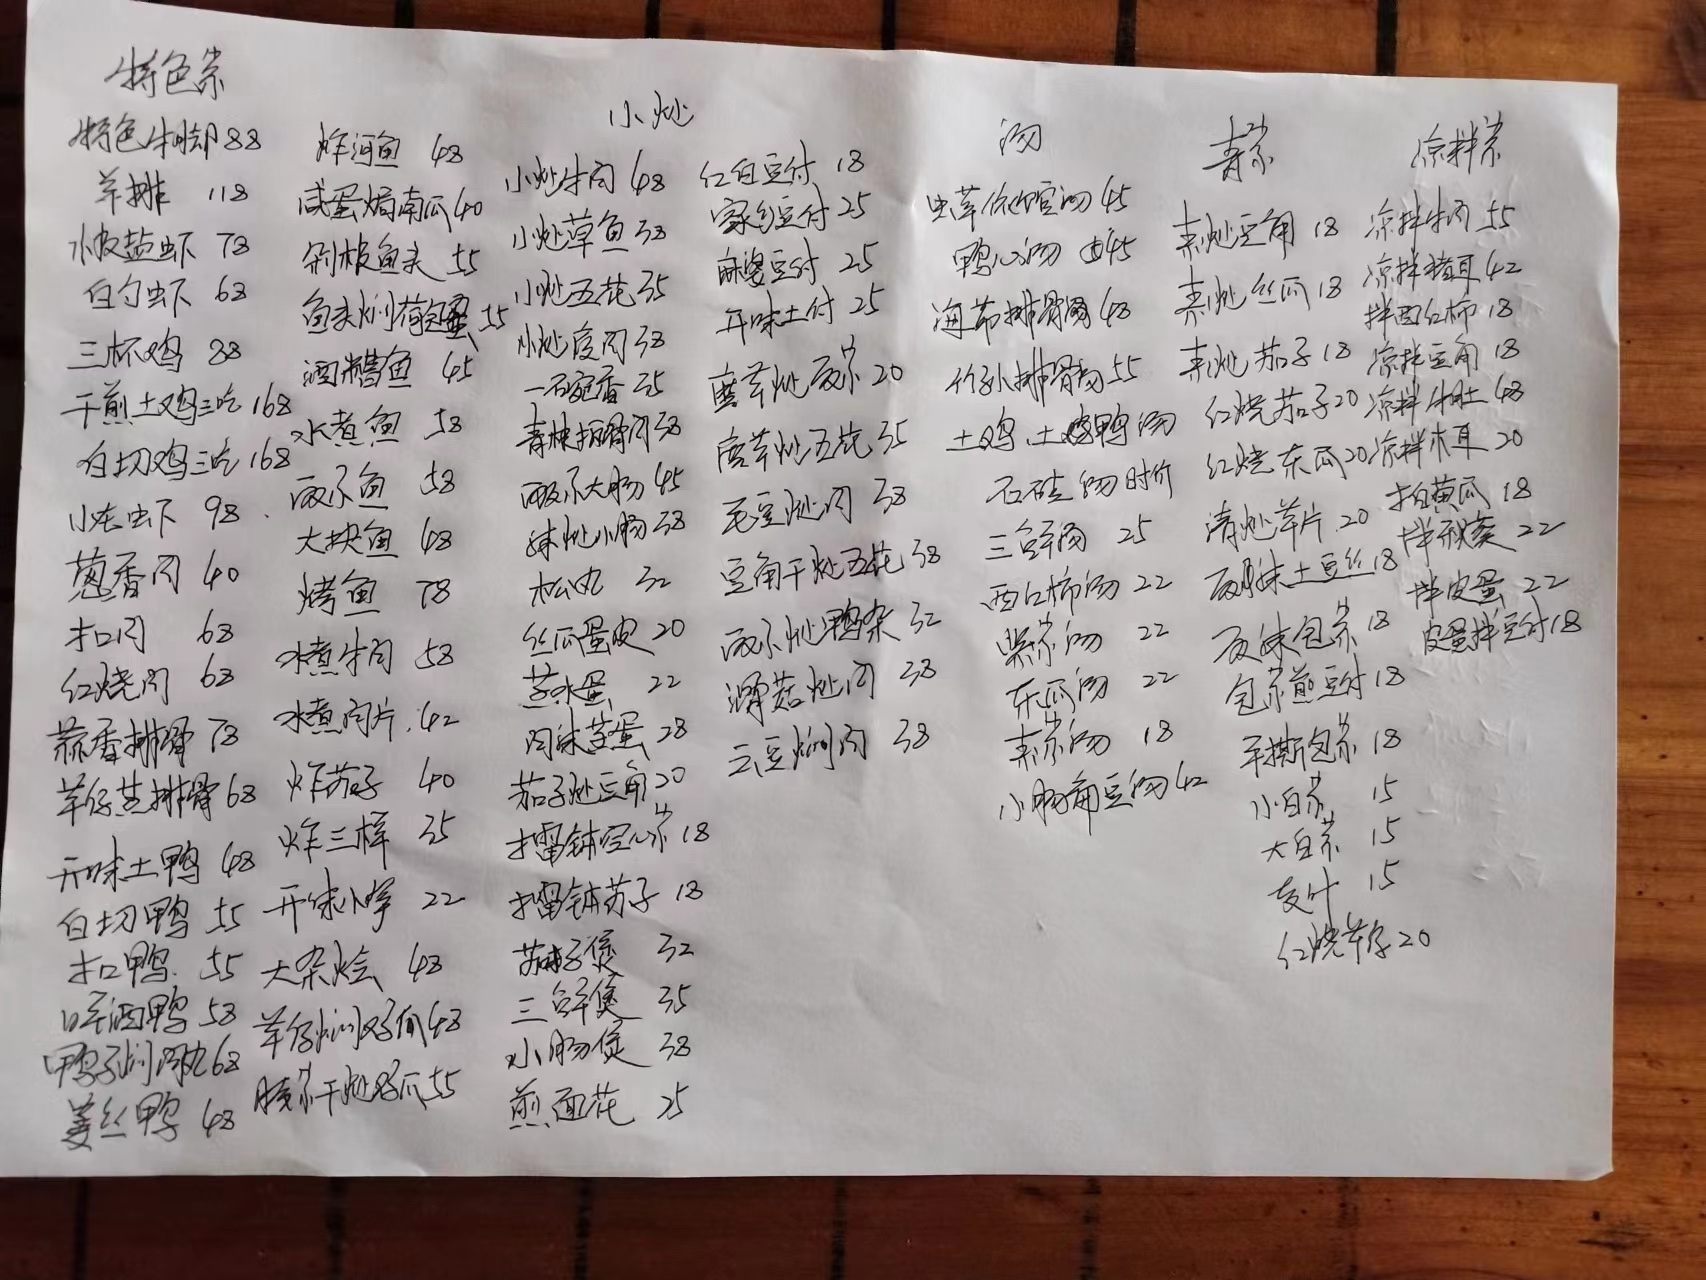 特色菜
特色牛脚 88
羊排 118
水板盐虾 78
白勺虾 68
三杯鸡 88
干煎土鸡三吃 168
白切鸡三吃 168
小龙虾 98
葱香肉 40
扣肉 68
红烧肉 68
蒜香排骨 78
芋仔蒸排骨 68
开味土鸭 48
白切鸭 55
扣鸭 55
啤酒鸭 58
鸭子焖肉丸 68
姜丝鸭 48
炸河鱼 48
咸蛋焗南瓜 40
剁椒鱼头 55
鱼头焖荷包蛋 55
酒糟鱼 45
水煮鱼 58
酸菜鱼 58
大块鱼 48
烤鱼 78
水煮牛肉 58
水煮肉片 42
炸茄子 40
炸三样 35
开味小笋 22
大杂烩 48
芋仔焖 48
干 55
小炒
小炒牛肉 48
小炒草鱼 38
小炒五花 35
小炒瘦肉 38
一碗香 35
青椒排骨肉 38
酸菜大肠 45
小肠 38
松丸 32
丝瓜蛋皮 20
蒸水蛋 22
肉沫蒸蛋 28
茄子炒豆角 20
擂钵空心菜 18
擂钵茄子 18
茄子煲 32
三鲜煲 35
小肠煲 38
煎面花 25
红白豆付 18
家乡豆付 25
麻婆豆付 25
开味土付 25
蘑菇炒酸菜 20
蘑菇炒五花 35
毛豆炒肉 38
豆角干炒五花 38
酸菜炒鸭杂 32
菇炒肉 38
云豆焖肉 38
汤
虫草汤 45
鸭心汤 45
海带排骨 48
竹笋排骨汤 55
土鸡、土鸭汤
石硅汤 时价
三鲜汤 25
西红柿汤 22
紫菜汤 22
冬瓜汤 22
素菜汤 18
小肠角豆汤 42
青菜
素炒豆角 18
素炒丝瓜 18
素炒茄子 18
红烧茄子 20
红烧东瓜 20
清炒芋片 20
酸辣土豆丝 18
包菜 18
包菜煎豆付 18
手撕包菜 18
小白菜 15
大白菜 15
支叶 15
红烧芋子 20
凉拌菜
凉拌牛肉 55
凉拌猪耳 42
拌西红柿 18
凉拌豆角 18
凉拌牛肚 48
凉拌木耳 20
拍黄瓜 18
拌秋葵 22
拌皮蛋 22
皮蛋拌豆付 18